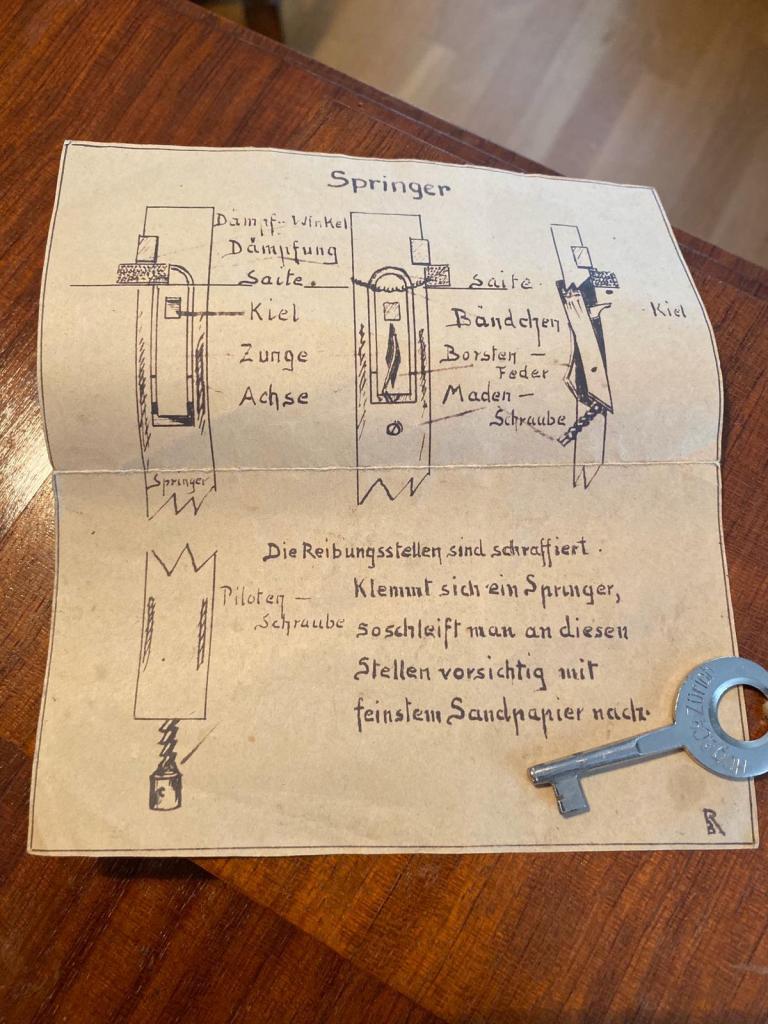 Springer
Dämpf-Winkel
Dämpfung
Saite.
Kiel
Zunge
Achse
Springer
Saite.
Bändchen
Borsten-
Feder
Maden-
Schraube
Kiel
Piloten-
Schraube
Die Reibungsstellen sind schraffiert.
Klemmt sich ein Springer,
so schleift man an diesen
Stellen vorsichtig mit
feinstem Sandpapier nach.
ZÜRICH